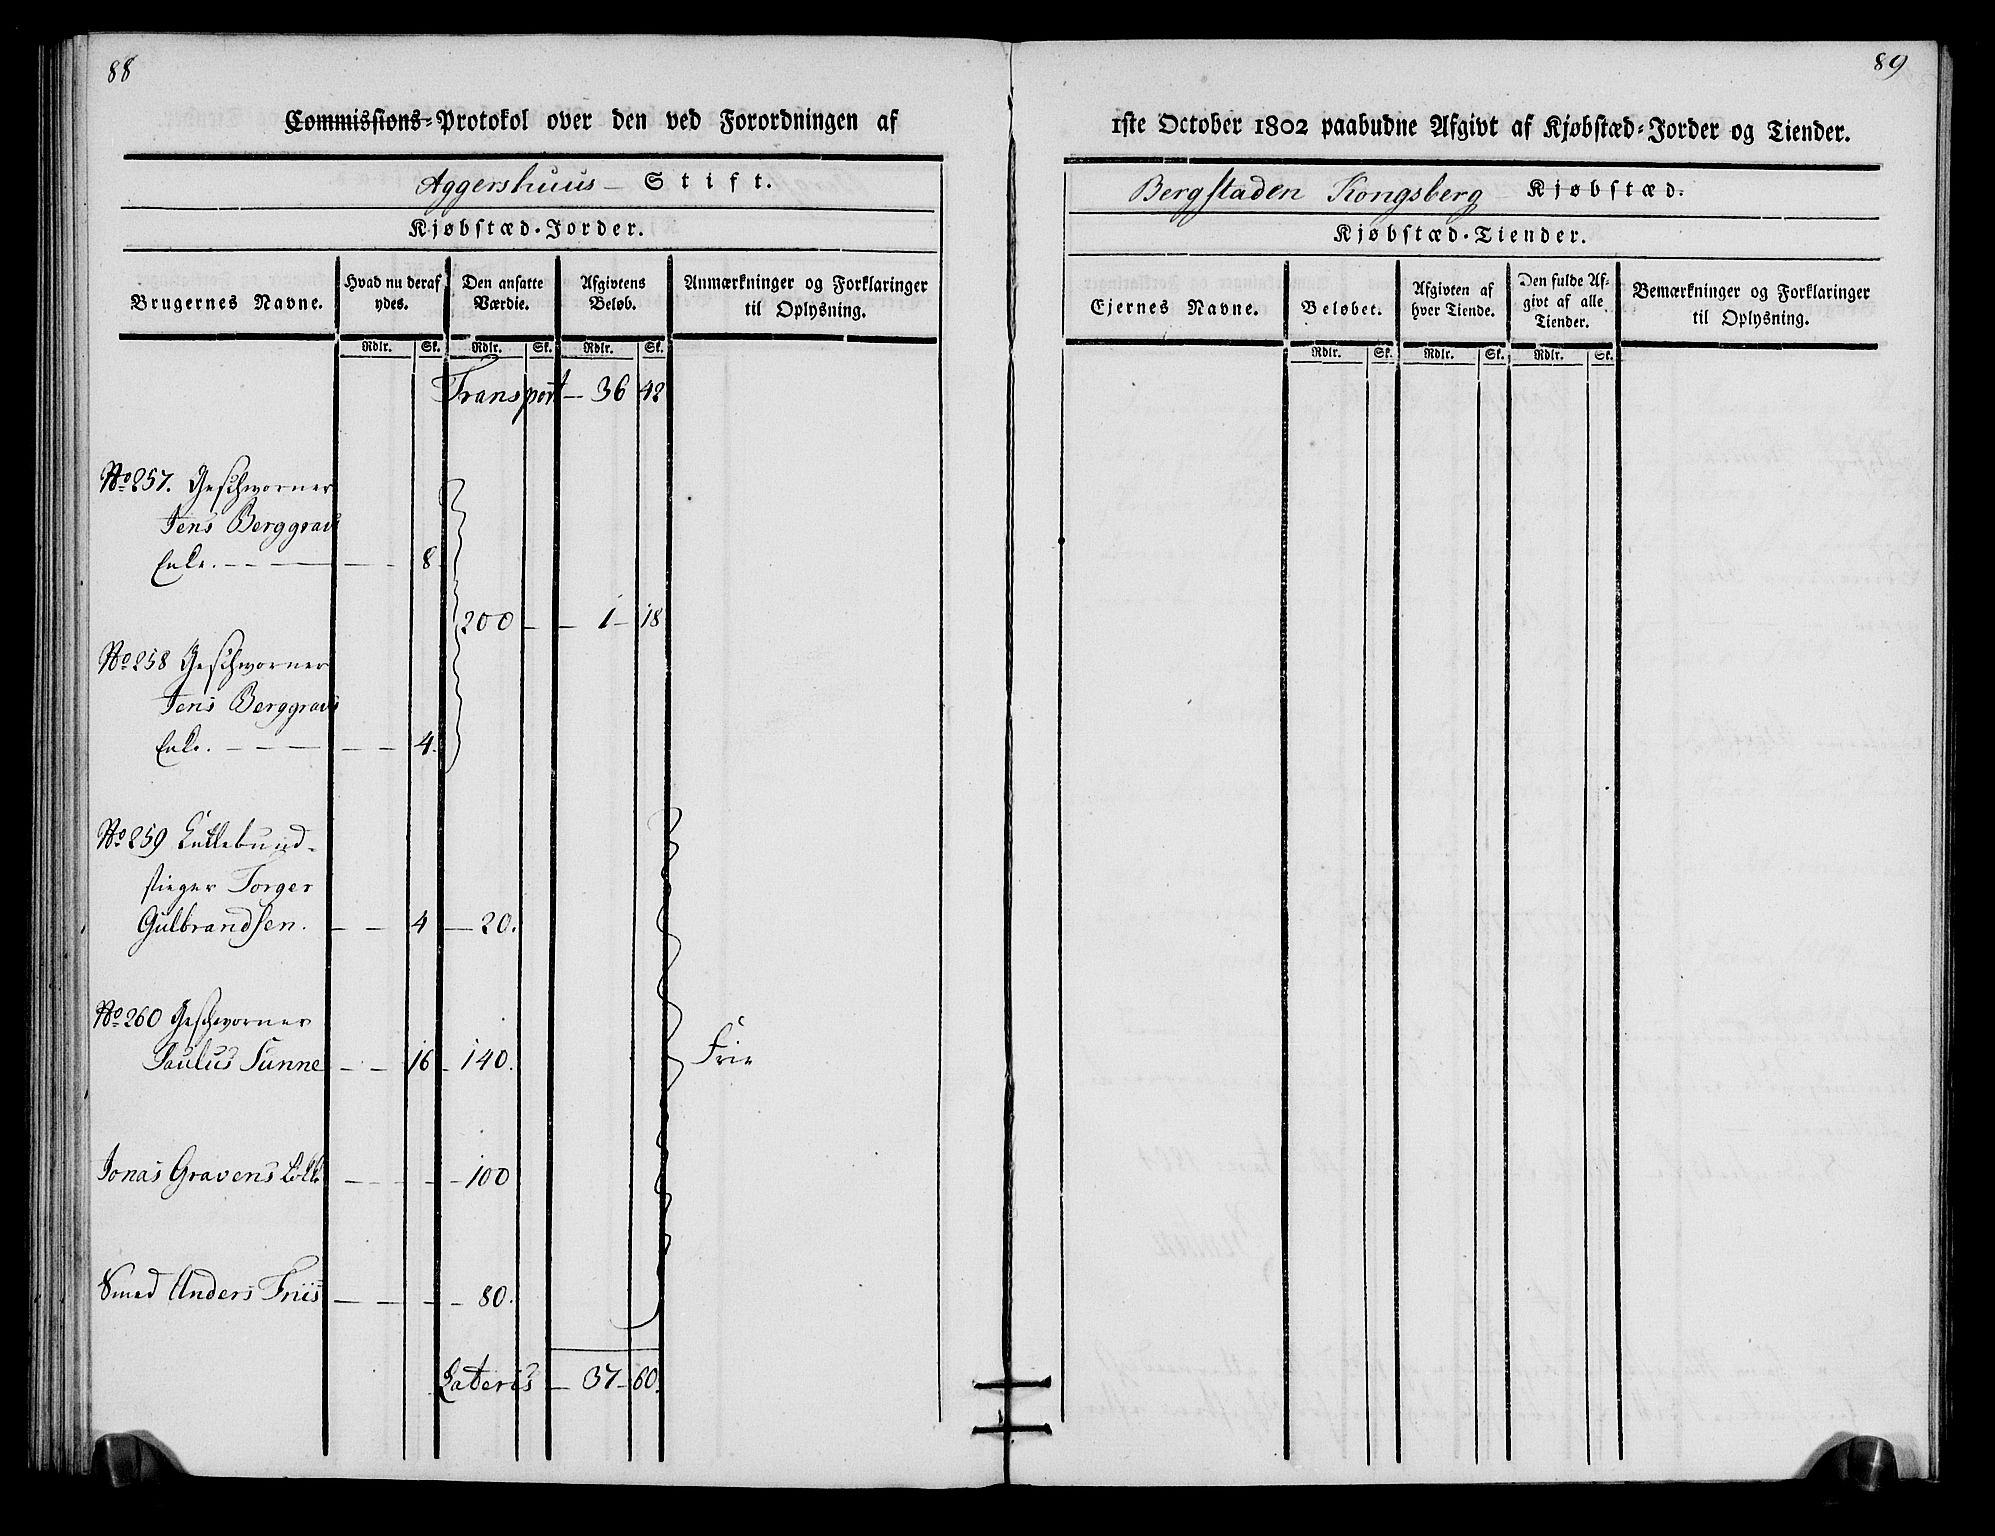 88
Commissions-Protokol over den ved Forordningen af
Aggershuus – Stift.
Kjøbstæd-Jorder.
Brugernes Navne. Hvad nu deraf ydes. Den ansatte Værdie. Afgivtens Beløb. Anmærkninger og Forklaringer til Oplysning.
Rdlr. Sk. Rdlr. Sk. Rdlr. Sk.
Transport – 36 42
No 257. Geschworner
Jens Berggravs
Enke. – – – 8
200 – – 1 – 18
No 258 Geschworner
Jens Berggravs
Enke. – – – – 4.
No 259
stieger Torger
Gulbrandsen. – – 4 – 20.
No 260 Geschworner
Paulus Sunne – – 16 – 140. Frie
Jonas Gravens Løkke – – – – 100
Smed Anders Friis – – – – 80.
Lateris – 37 – 60.
89
1ste October 1802 paabudne Afgivt af Kjøbstæd-Jorder og Tiender.
Bergstaden Kongsberg – Kjøbstæd.
Kjøbstæd-Tiender.
Ejernes Navne. Beløbet. Afgivten af hver Tiende. Den fulde Afgivt af alle Tiender. Bemærkninger og Forklaringer til Oplysning.
Rdlr. Sk. Rdlr. Sk. Rdlr. Sk.